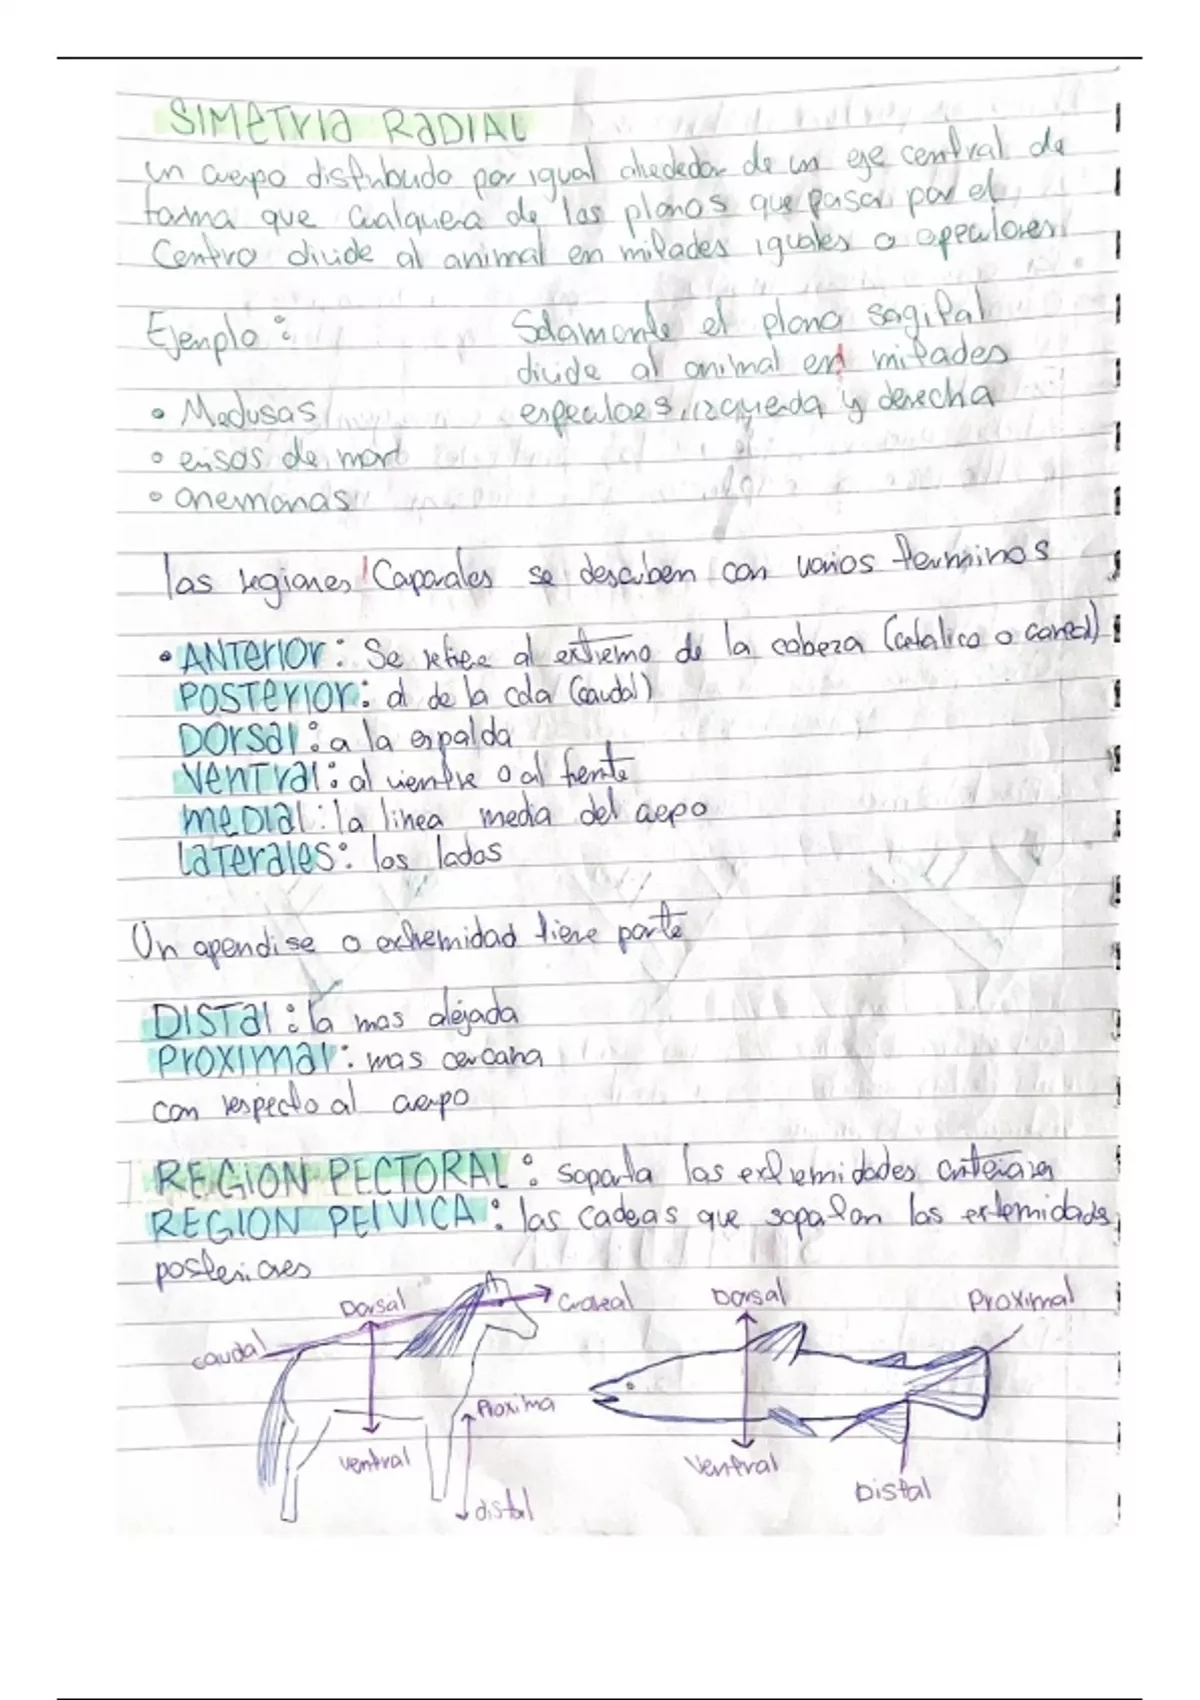 SIMETRIA RADIAL
un cuerpo distribuido por igual alrededor de un eje central de
forma que cualquiera de los planos que pasan por el
Centro divide al animal en mitades iguales o especulares
Ejemplo:
• Medusas
• erisos de mar
• anemonas
Solamente el plano sagital
divide al animal en mitades
especulares, izquerda y derecha
las regiones Caporales se describen con varios terminos
• ANTERIOR: Se refiere al extremo de la cabeza (cefalico o craneal)
POSTERIOR: al de la cola (caudal)
DORSAL: a la espalda
VENTRAL: al vientre o al frente
MEDIAL: la linea media del cuerpo
LATERALES: los lados
Un apendise o extremidad tiene parte
DISTAL: la mas alejada
PROXIMAL: mas cercana
con respecto al cuerpo
REGION PECTORAL: soporta las extremidades anteriores
REGION PELVICA: las cadeas que soportan las extremidades
posteriores
Dorsal
Craneal
caudal
Proxima
ventral
distal
Dorsal
Proximal
Ventral
Distal